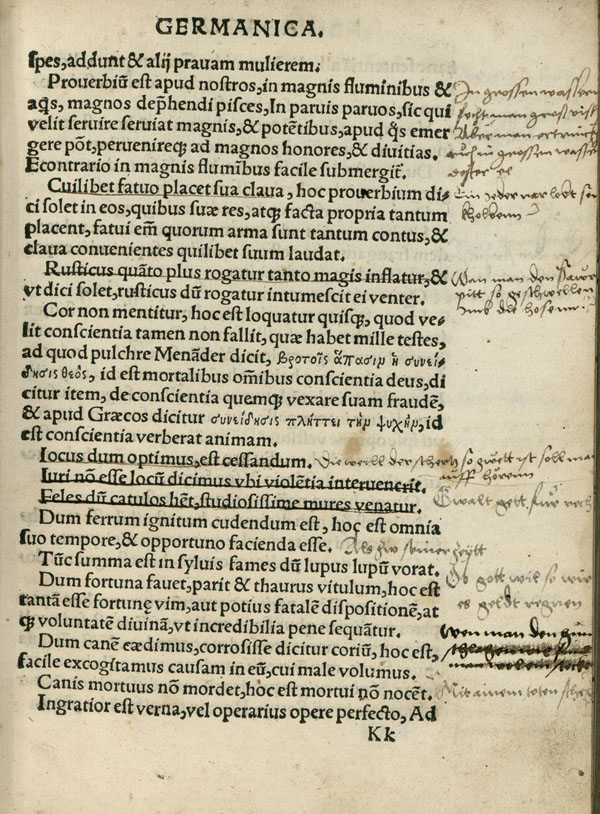 GERMANICA.
spes, addunt & alij prauam mulierem.
Prouerbiũ est apud nostros, in magnis fluminibus &
aq̃s, magnos dep̃hendi pisces, In paruis paruos, sic qui
velit seruire seruiat magnis, & potẽtibus, apud q̃s emer
gere põt, peruenireqꝫ ad magnos honores, & diuitias.
Econtrario in magnis flumibus facile submergit̃.
Cuilibet fatuo placet sua claua, hoc prouerbium di-
ci solet in eos, quibus suæ res, atqꝫ facta propria tantum
placent, fatui em̃ quorum arma sunt tantum contus, &
claua conuenientes quilibet suum laudat.
Rusticus quãto plus rogatur tanto magis inflatur, &
vt dici solet, rusticus dũ rogatur intumescit ei venter.
Cor non mentitur, hoc est loquatur quisqꝫ, quod ve-
lit conscientia tamen non fallit, quæ habet mille testes,
ad quod pulchre Menãder dicit, βροτοῖς ἅπασιν ἡ συνεί-
δησις θεὸς, id est mortalibus om̃ibus conscientia deus, di
citur item, de conscientia quemqꝫ vexare suam fraudẽ,
& apud Græcos dicitur συνείδησις πλήττει τὴν ψυχὴν, id
est conscientia verberat animam.
Iocus dum optimus, est cessandum.
Iuri nõ esse locũ dicimus vbi violẽtia interuenerit.
Feles dũ catulos hẽt, studiosissime mures venatur.
Dum ferrum ignitum cudendum est, hoc est omnia
suo tempore, & opportuno facienda esse.
Tũc summa est in syluis fames dũ lupus lupũ vorat.
Dum fortuna fauet, parit & thaurus vitulum, hoc est
tantã esse fortunę vim, aut potius fatalẽ dispositionẽ, at
qꝫ voluntatẽ diuinã, vt incredibilia pene sequãtur.
Dum canẽ cædimus, corrosisse dicitur coriũ, hoc est,
facile excogitamus causam in eũ, cui male volumus.
Canis mortuus nõ mordet, hoc est mortui nõ nocẽt.
Ingratior est verna, vel operarius opere perfecto, Ad
Kk
In grossen wassern
facht man gross visch
Aber man ertrinckt
auch in grossen wassern
Ein jeder nar lobt sein
kholben
Wan man den Baurn
pitt so geschwellen
die hosenn
Die weill der schertz so guett ist soll man
auff hörenn
Gwalt gett für rech
Als zw seiner zeytt
Gott wil so
es geldt regnen
Wen man den
Mit ainem toten